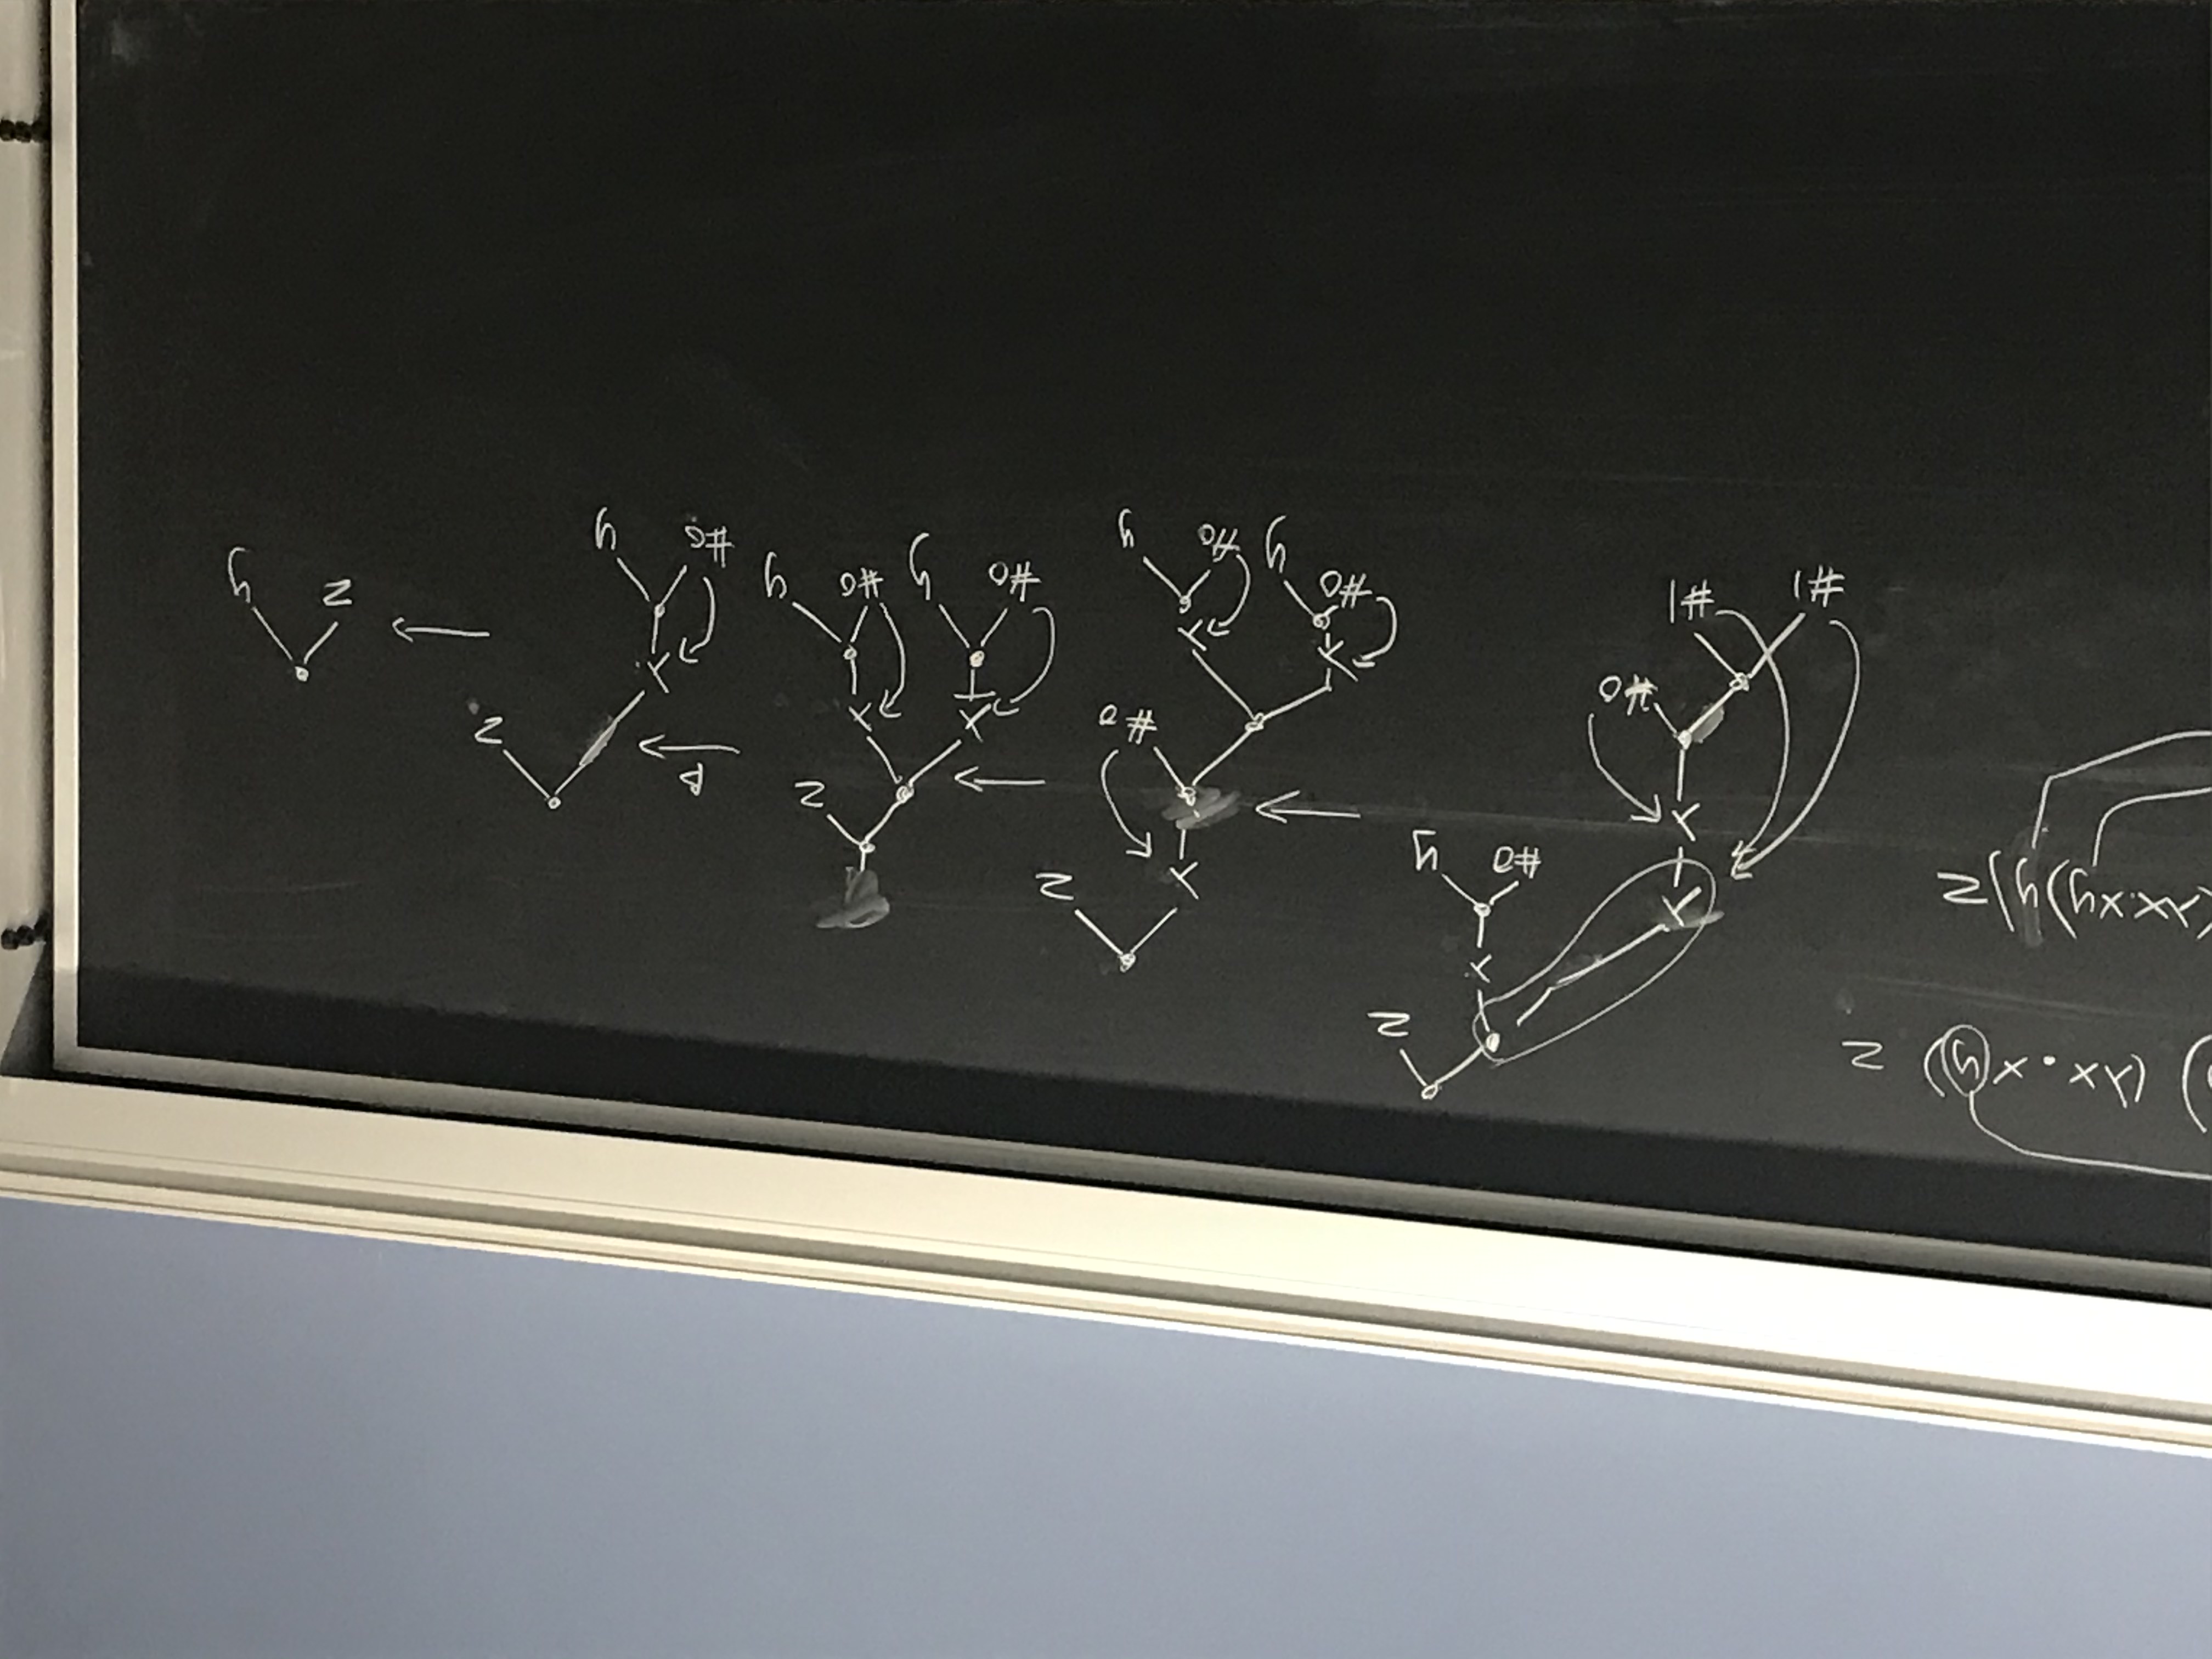 ) (λx.x(y)) z
(λx.xy)y)z
z
λ
#0 y
λ
λ
#0
#1 #1
→
z
λ
#0
λ λ
#0 y #0 y
→
z
λ λ
#0 y #0 y
β
→
z
λ
#0 y
→
z y